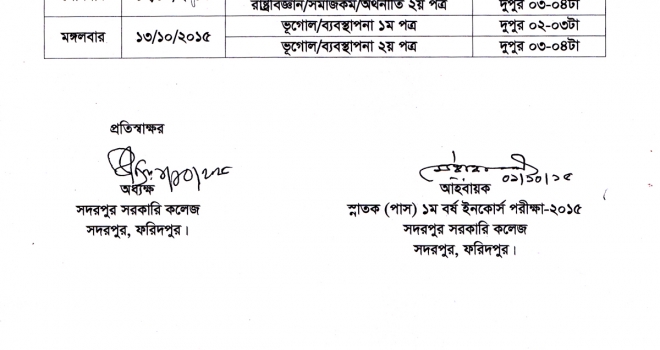 রাষ্ট্রবিজ্ঞান/সমাজকর্ম/অর্থনীতি ২য় পত্র দুপুর ০৩-০৪টা
মঙ্গলবার ১৩/১০/২০১৫ ভূগোল/ব্যবস্থাপনা ১ম পত্র দুপুর ০২-০৩টা
ভূগোল/ব্যবস্থাপনা ২য় পত্র দুপুর ০৩-০৪টা
প্রতিস্বাক্ষর
অধ্যক্ষ
সদরপুর সরকারি কলেজ
সদরপুর, ফরিদপুর।
আহবায়ক
স্নাতক (পাস) ১ম বর্ষ ইনকোর্স পরীক্ষা-২০১৫
সদরপুর সরকারি কলেজ
সদরপুর, ফরিদপুর।